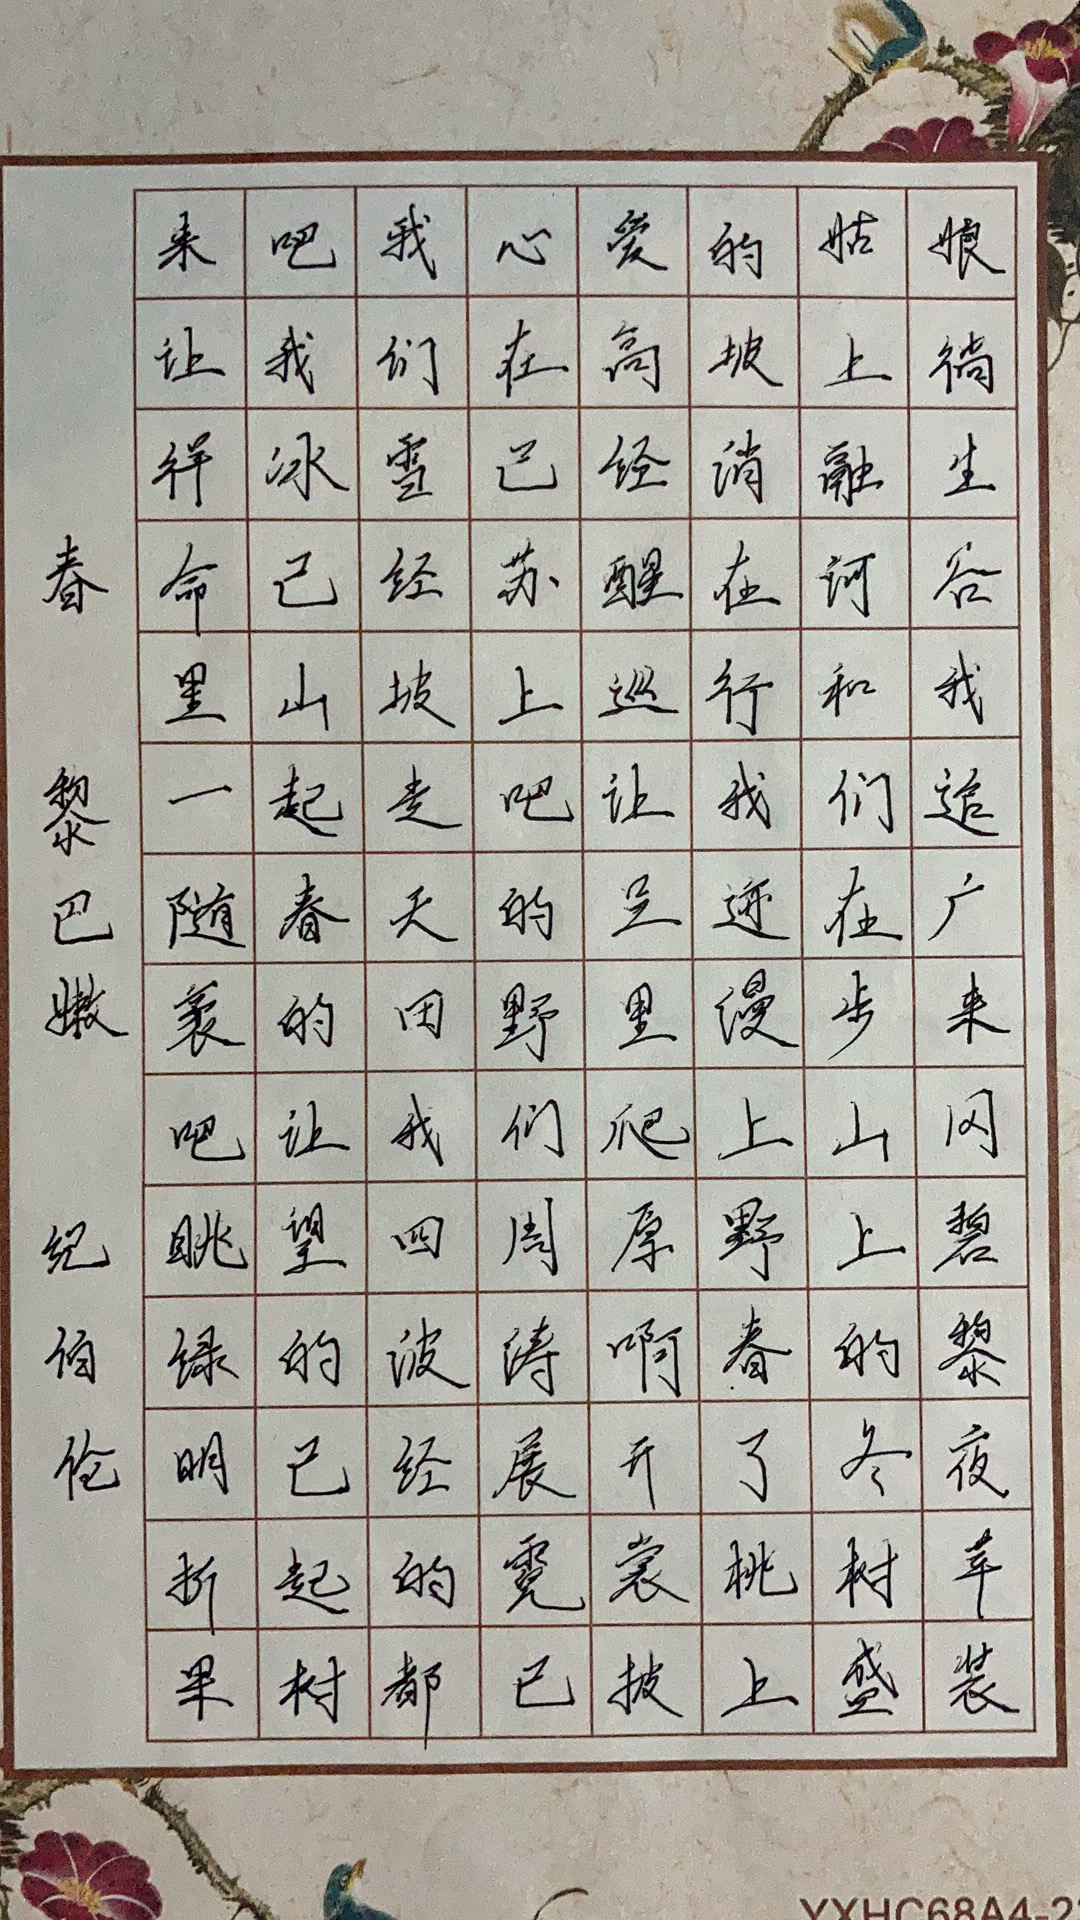 来吧我心爱的姑娘
让我们在高坡上徜
徉冰雪已经消融生
命已经苏醒在河谷
里山坡上巡行和我
一起走吧让我们追
随春天的足迹在广
袤的田野里漫步来
吧让我们爬上山冈
眺望四周原野上碧
绿的波涛啊春的黎
明已经展开了冬夜
折起的霓裳桃树苹
果树都已披上盛装
春 黎巴嫩 纪伯伦
YXHC68A4-2